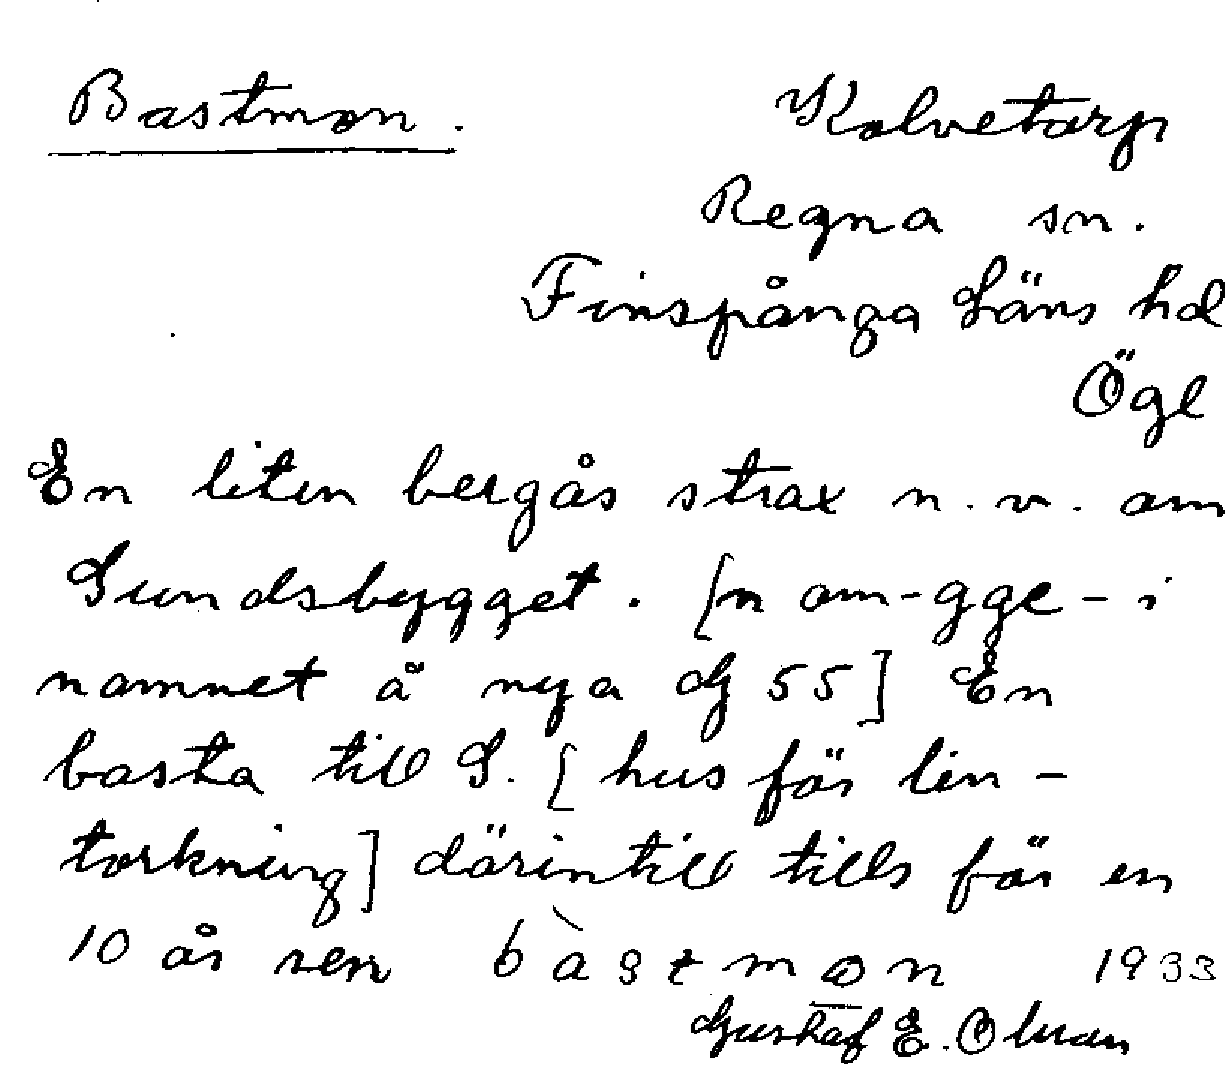 Bastmon.
Kolvetorp
Regna sn.
Finspånga läns hd
Ögl
En liten bergås strax n. v. om
Sundsbygget. [n om -gge- i
namnet å nya GJ 55] En
basta till S. [hus för lin-
torkning] därintill tills för en
10 år sen bàstmon 1933
Gustaf E. Olman